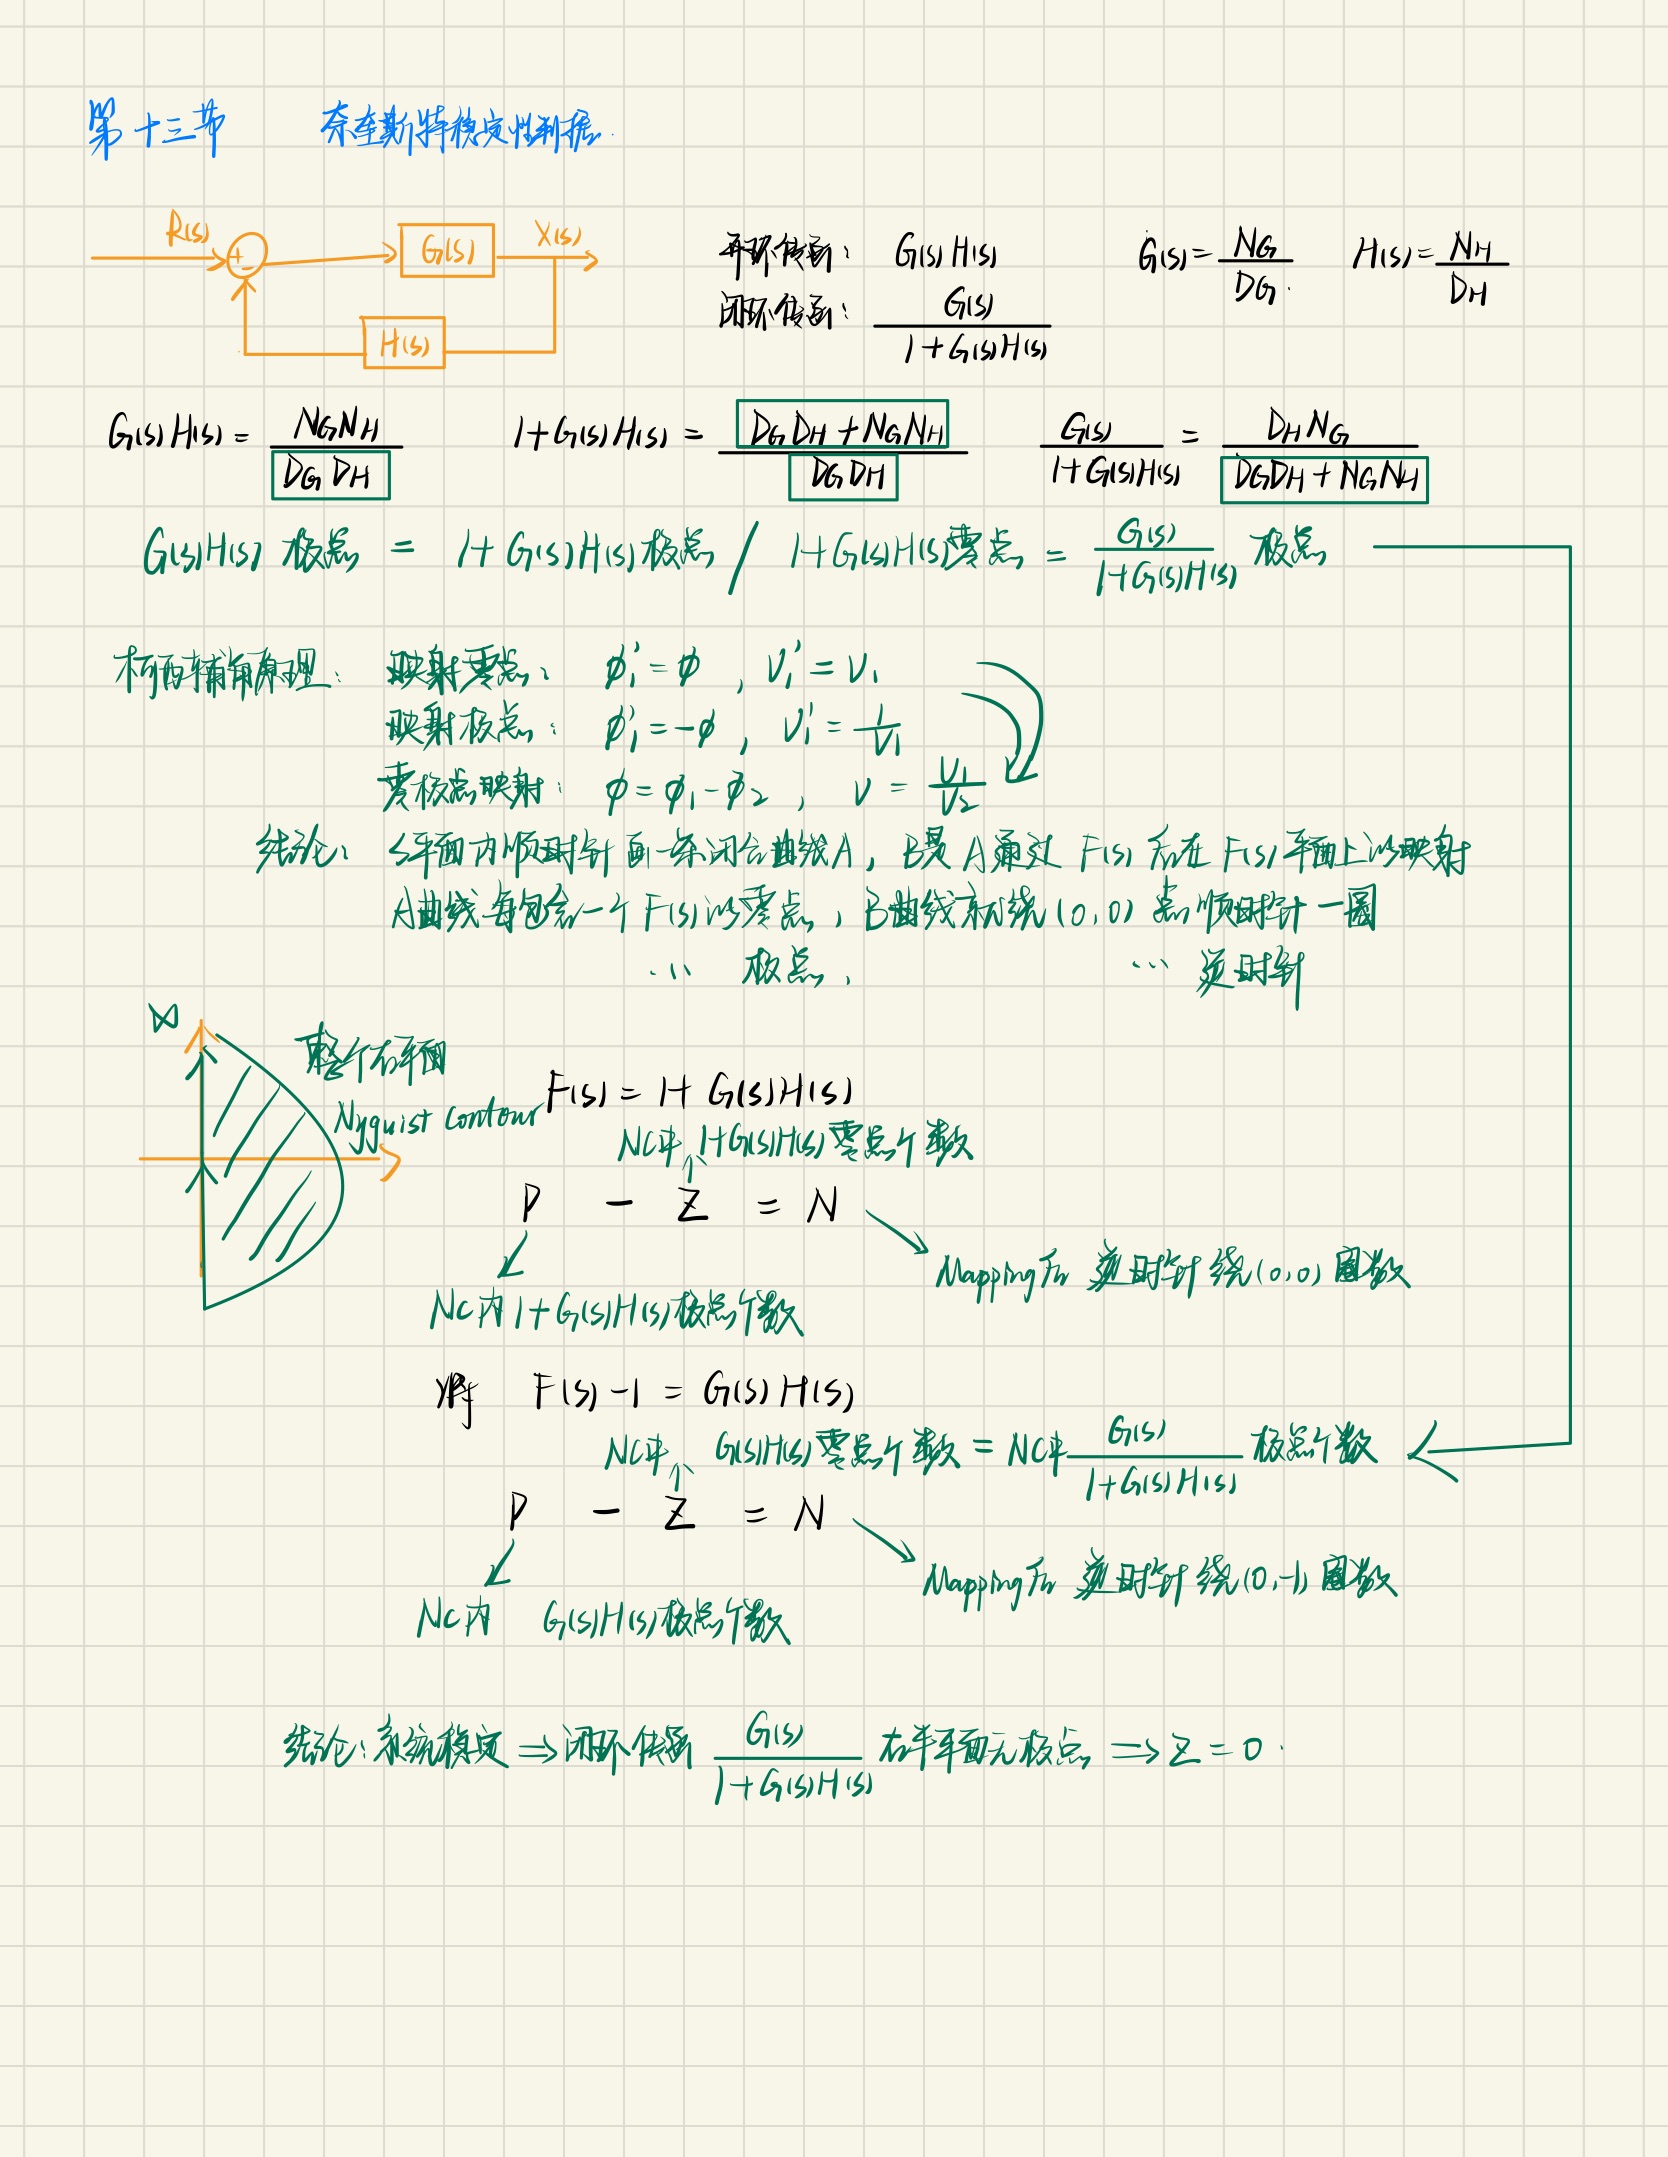 第十三节 奈奎斯特稳定性判据.
R(s) + - G(s) X(s)
H(s)
开环传函: G(s)H(s) G(s)=NG/DG. H(s)=NH/DH
闭环传函: G(s)/(1+G(s)H(s))
G(s)H(s) = NGNH/(DG DH) 1+G(s)H(s) = (DG DH+NGNH)/(DG DH) G(s)/(1+G(s)H(s)) = DH NG/(DGDH+NGNH)
G(s)H(s) 极点 = 1+G(s)H(s)极点 / 1+G(s)H(s)零点 = G(s)/(1+G(s)H(s)) 极点
柯西辅角原理: 映射零点: ϕ₁'=ϕ, V₁'=V₁
映射极点: ϕ₁'=-ϕ, V₁'=1/V₁
零极点映射: ϕ=ϕ₁-ϕ₂, V=V₁/V₂
结论: S平面内顺时针画一条闭合曲线A, B是A通过F(s)后在F(s)平面上的映射
A曲线每包含一个F(s)的零点, B曲线就绕(0,0)点顺时针一圈
... 极点, ... 逆时针
∞
整个右平面
Nyquist contour
F(s) = 1+G(s)H(s)
NC中 1+G(s)H(s)零点个数
P - Z = N
Mapping后 逆时针绕(0,0)圈数
NC内1+G(s)H(s)极点个数
将 F(s)-1 = G(s)H(s)
NC中 G(s)H(s)零点个数 = NC中 G(s)/(1+G(s)H(s)) 极点个数
P - Z = N
Mapping后 逆时针绕(0,-1)圈数
NC内 G(s)H(s)极点个数
结论: 系统稳定 ⇒ 闭环传函 G(s)/(1+G(s)H(s)) 右半平面无极点 ⇒ Z=0.